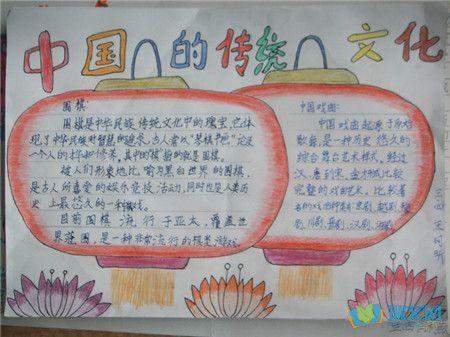 中国的传统文化
围棋:
围棋是中华民族传统文化中的瑰宝,它体
现了中华民族对智慧的追求,古人常以“琴棋书画”论及
一个人的才华和修养,其中的“棋”指的就是围棋。
被人们形象地比喻为黑白世界的围棋,
是古人所喜爱的娱乐竞技活动,同时也是人类历
史上最悠久的一种棋戏。
目前围棋流行于亚太,覆盖世
界范围,是一种非常流行的棋类游戏。
中国戏曲:
中国戏曲起源于原始
歌舞,是一种历史悠久的
综合舞台艺术样式,经过
汉、唐到宋、金才形成比较
完整的戏曲艺术,比较著
名的戏曲种类有:京剧、越剧、
川剧、
汉剧、
三